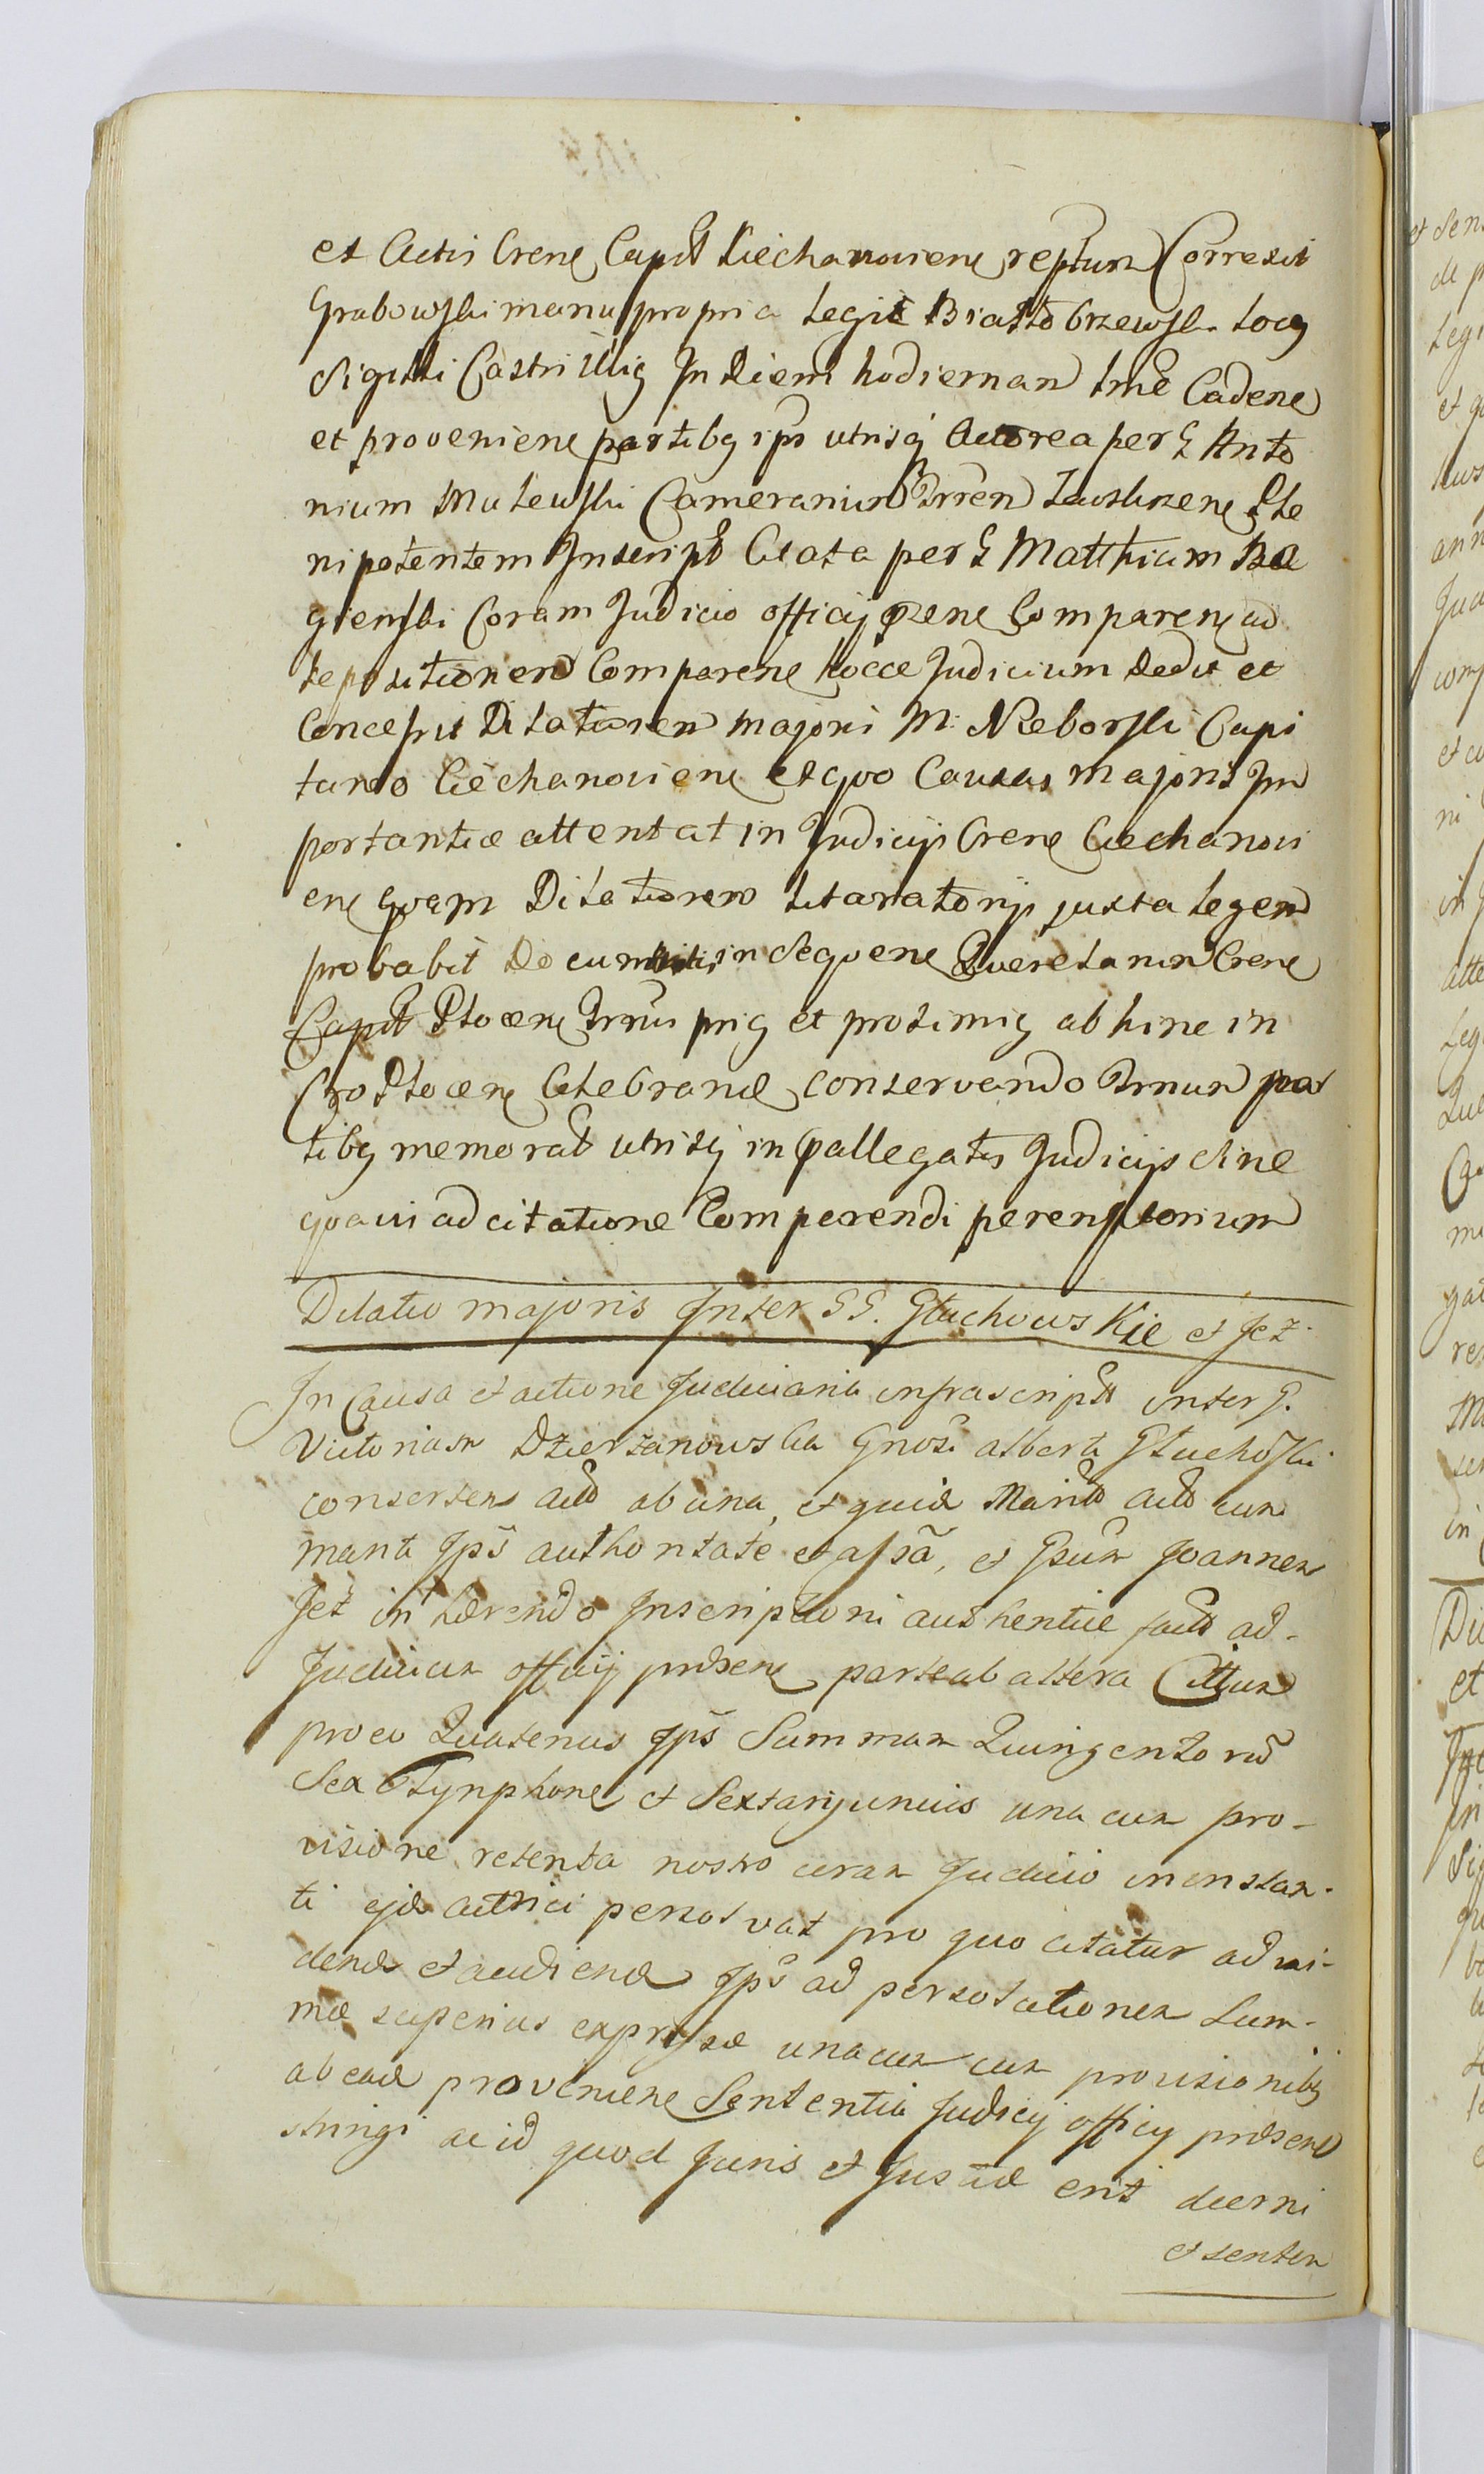 et Actis Crens Capit Ciechanoviens reptum Correxit
Grabowski manu propria Legit Białłobrzewski Locus
Sigilli Castri illius In Diem hodiernam tme Cadens
et proveniens partibus ipis utrisq Actorea per G Anto
nium Mulewski Camerarium Trren Zawskrzens Ple
nipotentem Inscript Citata per G Matthiam
gienski Coram Judicio officij pzens Comparens ad
depositionem Comparens hocce Judicium Dedit et
Concessit Dilationem majoris M. Nieborski Capi
taneo Ciechanoviens et quo Causas majoris Im
portantiæ attentat in Judicijs Crens Ciechanovi
ens quam Dilationem Litaratorijs juxta Legem
probabit Documentis in Sequens Querelarum Crens
Capit Plocens Trmis pris et proximis ab hinc in
Cro Plocens Celebrand conservando Trmum par
tibus memorat utrisq in præallegatis Judicijs sine
quavis adcitatione Comparendi peremptorium
Dilatio majoris Inter GG. Głuchowskie et Jeż
In Causa et actione Judiciaria infrascripta inter G.
Victoriam Dzierzanowska Gnosi alberti Głuchoski
consortem act ab una, et quid Marito act cum
mariti Ips authoritate et assã, et Gsum Joannem
Jeż in hærendo Inscriptioni authentice fact ad-
Judicium officij præsens parte ab altera Cittum
pro eo Quatenus Ips Summam Quingentorũ
Sex Tynphone et Sextarijunius una cum pro-
visione retenta nostro coram Judicio in instan-
ti ejd actrici persolvat pro quo citatur ad vi-
dend et audiend Ips ad persolutionem Sum-
mæ superius expressæ unacum cum provisionibus
ab ead proveniens Sententia Judicij officij præsens
stringi ac id quod Juris et Justiæ erit decerni
et senten